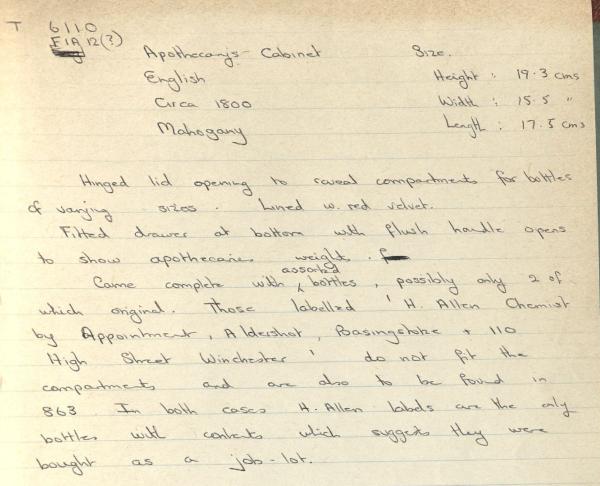 T 6110
F1A 12(?)
Apothecary's Cabinet Size.
English Height : 19.3 cms
Circa 1800 Width : 15.5 "
Mahogany Length : 17.5 cms
Hinged lid opening to reveal compartments for bottles
of varying sizes. Lined w. red velvet.
Fitted drawer at bottom with flush handle opens
to show apothecaries weight.
Came complete with assorted bottles, possibly only 2 of
which original. Those labelled 'H. Allen Chemist
by Appointment, Aldershot, Basingstoke + 110
High Street Winchester' do not fit the
compartments and are also to be found in
863. In both cases H. Allen labels are the only
bottles with contents which suggests they were
bought as a job-lot.